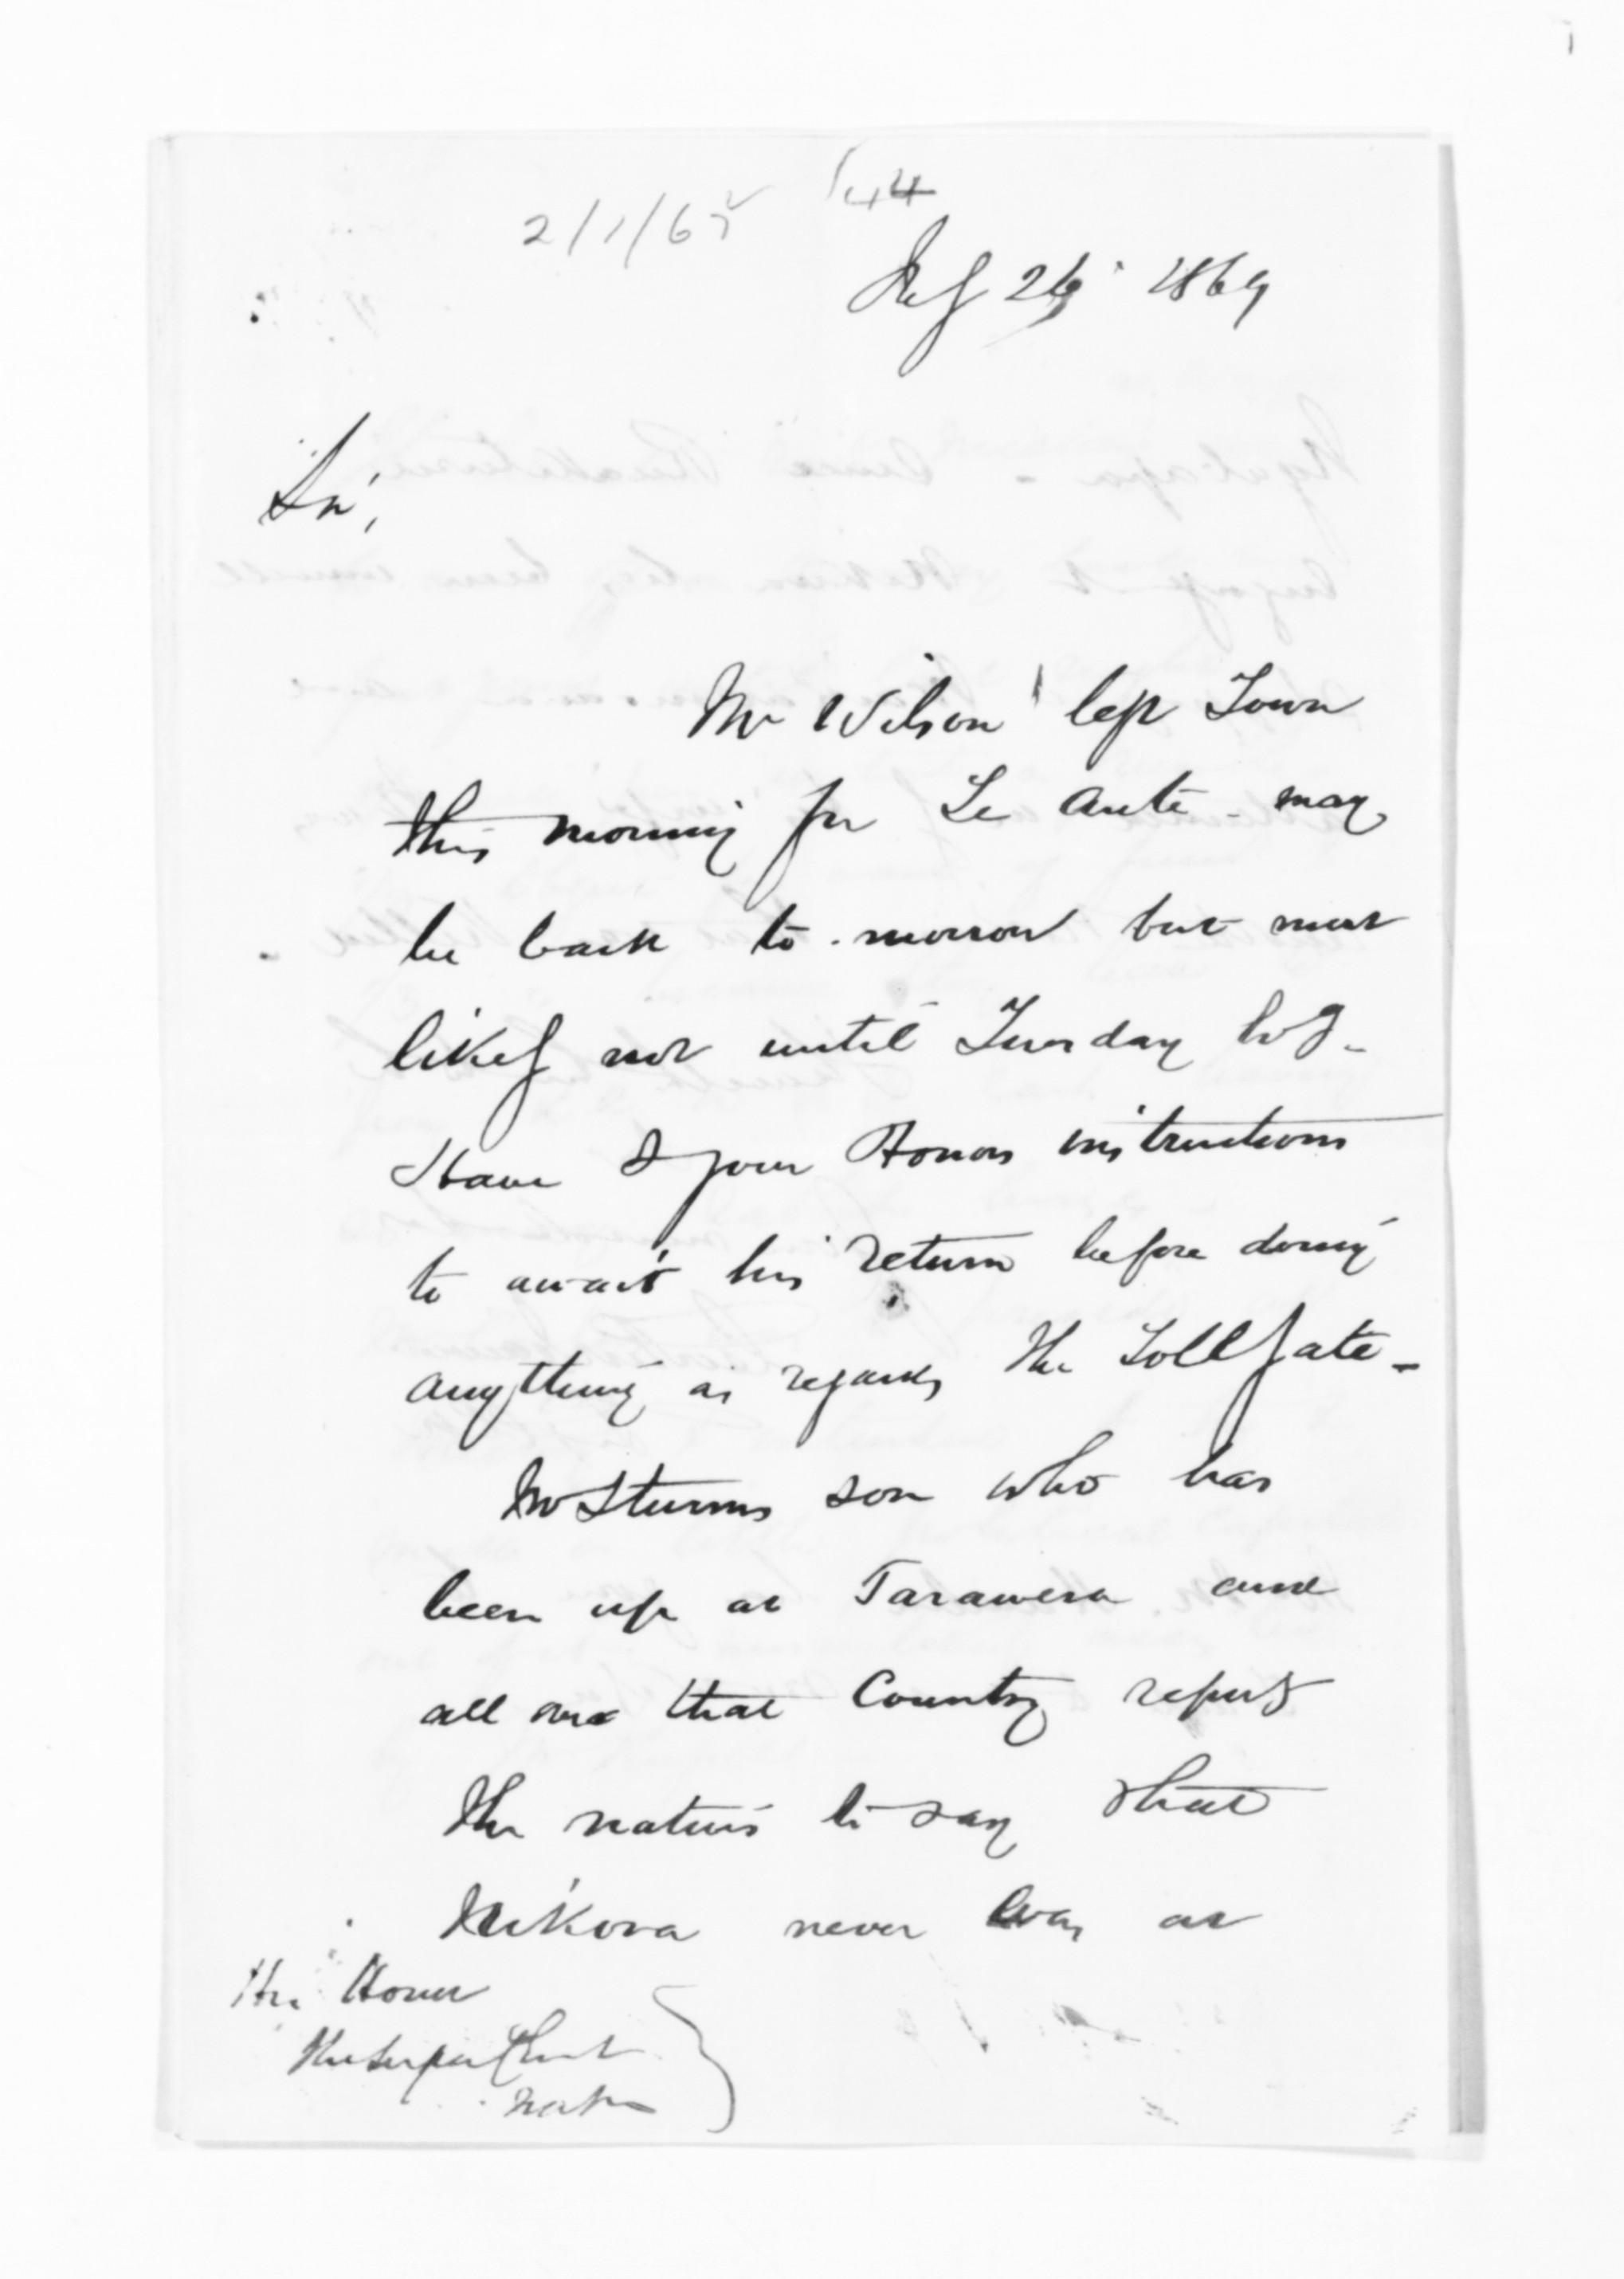 2/1/65
144
July 26 1869
Sir,
Mr Wilson left Town
this morning for Te Aute - may
be back to-morrow but most
likely not until Tuesday
Have I your Honors instructions
to await his return before doing
anything as regards the Tollgate -
Mr Sturms son who has
been up at Tarawera and
all over that Country reports
the natives to say that
never was at
His Honor
The Superintendent
Napier